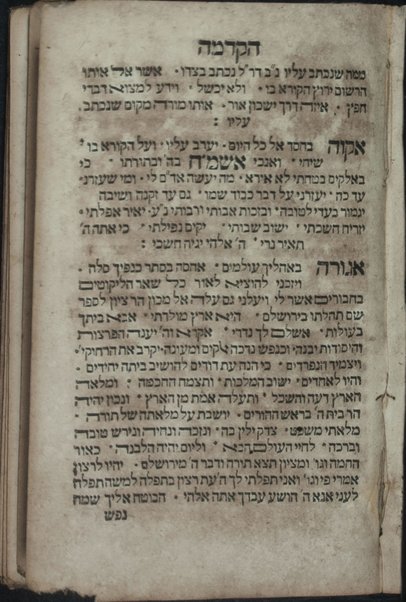 הקדמה
ממה שנכתב עליו נ"ב דר"ל נכתב בצדו · אשר אל אותו
הרשום ירוץ הקורא בו · ולא יכשל · וידע למצוא דברי
חפץ · איזה דרך ישכון אור · אותו מורה מקום שנכתב
עליו :
אקוה בחסד אל כל היום · יערב עליו · ועל הקורא בו
שיחי · ואנכי אשמ"ח בה' ובתורתו · כי
באלקים בטחתי לא אירא · מה יעשה אדם לי · ומי שעזרני
עד כה · יעזרני על דבר כבוד שמו · גם עד זקנה ושיבה
יגמור בעדי לטובה · ובזכות אבותי ורבותי נ"ע · יאיר אפלתי ·
יזריח חשכתי · ישוב שבותי · יקים נפילתי · כי אתה ה'
תאיר נרי · ה' אלהי יגיה חשכי :
אגורה באהליך עולמים · אחסה בסתר כנפיך סלה ·
ויזכני להוציא לאור כל שאר הליקוטים
בחבורים אשר לי · ויעלני גם עלה אל מכון הר ציון לספר
שם תהלתו בירושלם · היא ארץ מולדתי · אבא ביתך
בעולות · אשלם לך נדרי · אקרא וה' יענה הפרצות
והיסודות יבנה · וכנפש נדכה יקים ומעונה · יקרב את הרחוקי' ·
ויצמיד הנפרדים · כי הנה עת דודים להושיב ביתה יחידים ·
והיו לאחדים · ישוב המלכות · ותצמח החכמה · ומלאה
הארץ דעה והשכל · ותעלה אמת מן הארץ · ונכון יהיה
הר בית ה' בראש ההרים · יושבת על מלאתה של תורה ·
מלאתי משפט · צדק ילין בה · ונזכה ונחיה ונירש טובה
וברכה · לחיי העולם הבא · וליום יהיה הלבנה · כאור
החמה וגו' · ומציון תצא תורה ודבר ה' מירושלם · יהיו לרצון
אמרי פי וגו' · ואני תפלתי לך ה' עת רצון בתפלה למשה תפלה
לעני אנא ה' הושע עבדך אתה אלהי · הבוטח אליך שמח
נפש